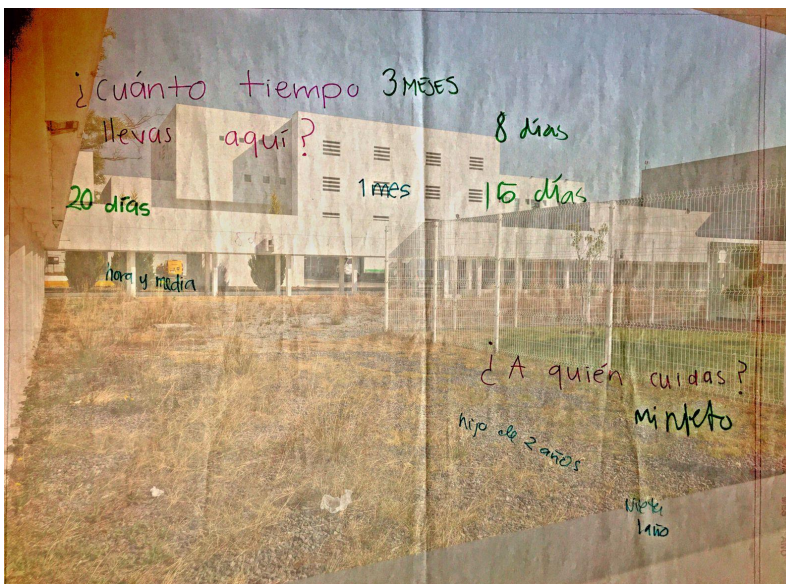 ¿cuánto tiempo 3 MESES
llevas aquí?
8 días
20 días
1 mes
15 días
hora y media
¿A quién cuidas?
mi nieto
hijo de 2 años
Nieta
1 año